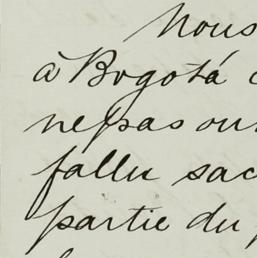 Nous
à Bogotá
ne pas ou
fallu sac
partie du